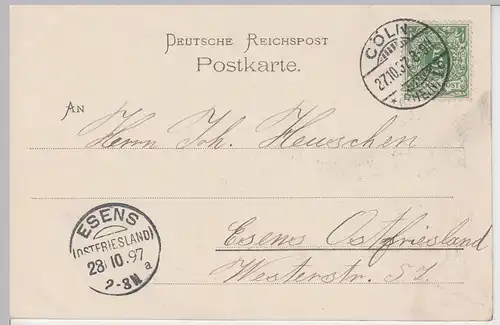 DEUTSCHE REICHSPOST
Postkarte.
AN
Herrn Joh. Heuschen
Esens Ostfriesland
Westerstr. 51.
CÖLN
27.10.97
ESENS
(OSTFRIESLAND)
28 10.97
2-3N a